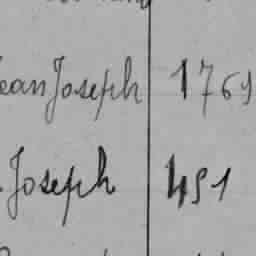 Jean Joseph 1769
Joseph 491